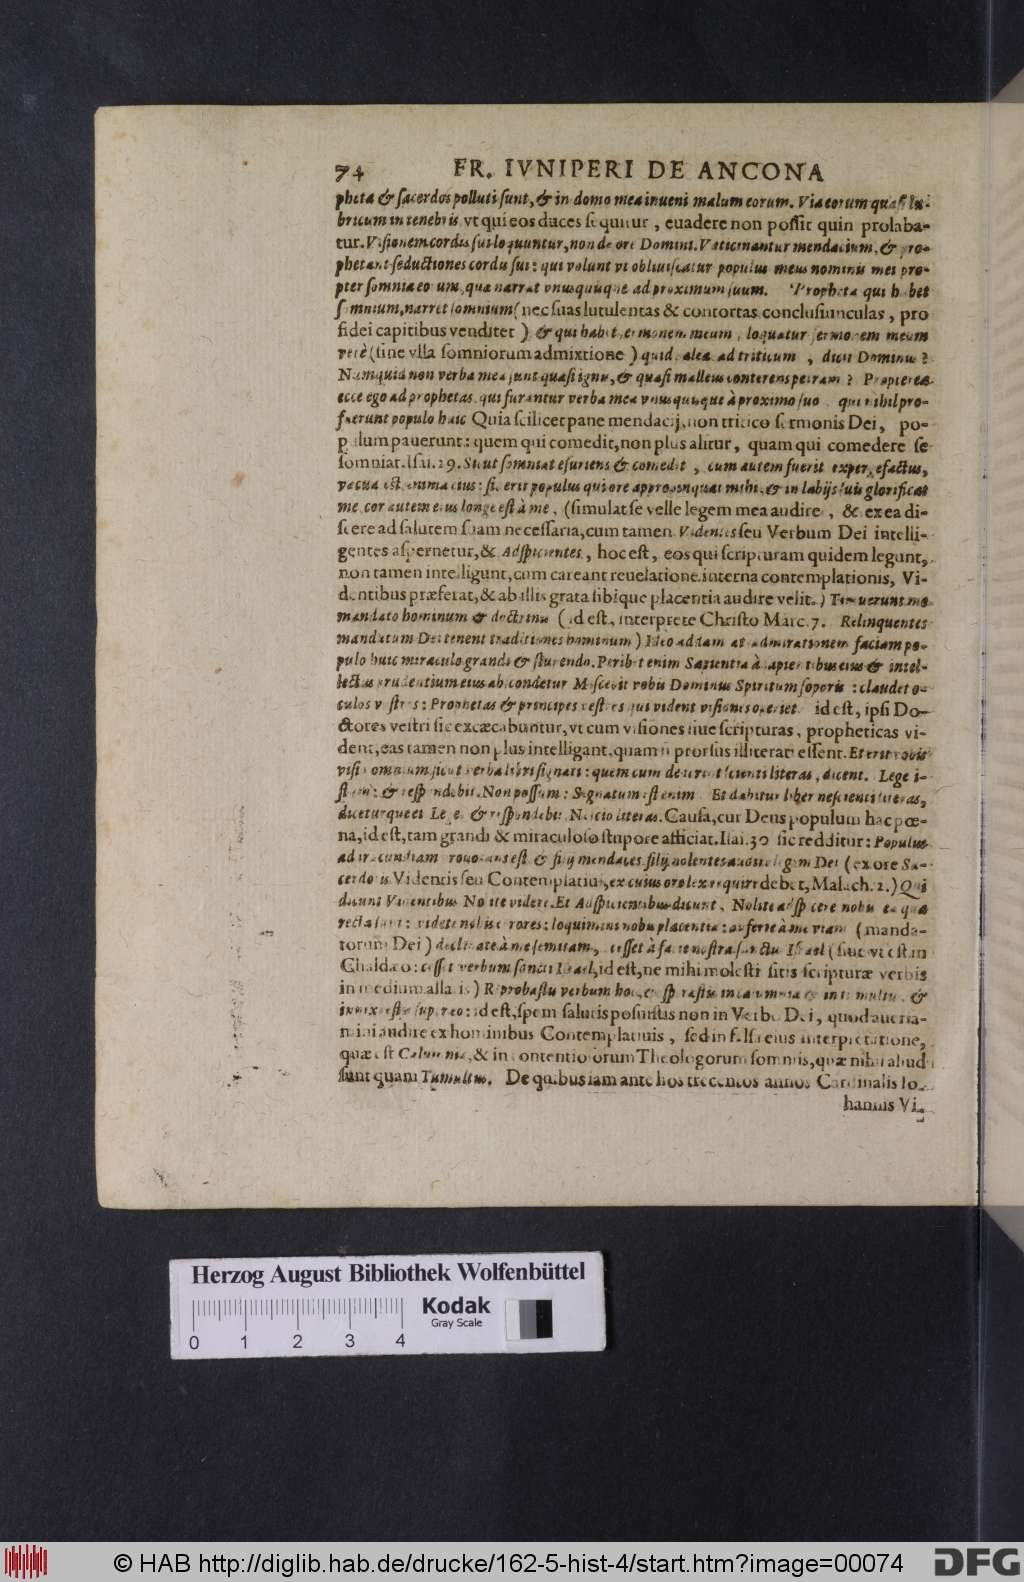 74 FR. IVNIPERI DE ANCONA
pheta & sacerdos polluti sunt, & in domo mea inueni malum eorum. Via eorum quasi lu-
bricum in tenebris, vt qui eos duces sequitur, euadere non possit quin prolaba-
tur. Visionem cordis sui loquuntur, non de ore Domini. Vaticinantur mendacium, & pro-
phetant seductiones cordis sui: qui volunt vt obliuiscatur populus meus nominis mei pro-
pter somnia eorum, quæ narrat vnusquisque ad proximum suum. Propheta qui habet
somnium, narret somnium (nec suas lutulentas & contortas conclusiunculas, pro
fidei capitibus venditet) & qui habet sermonem meum, loquatur sermonem meum
verè (sine vlla somniorum admixtione) quid paleæ ad triticum, dicit Dominus?
Numquid non verba mea sunt quasi ignis, & quasi malleus conterens petram? Propterea
ecce ego ad prophetas, qui furantur verba mea vnusquisque à proximo suo, qui nihil pro-
fuerunt populo huic Quia scilicet pane mendacij, non tritico sermonis Dei, po-
pulum pauerunt: quem qui comedit, non plus alitur, quam qui comedere se
somniat. Isai. 29. Sicut somniat esuriens & comedit, cum autem fuerit expergefactus,
vacua est anima eius: sic erit populus qui ore appropinquat mihi, & in labijs suis glorificat
me, cor autem eius longe est à me, (simulat se velle legem mea audire, & ex ea di-
scere ad salutem suam necessaria, cum tamen Videntes seu Verbum Dei intelli-
gentes aspernetur, & Adspicientes, hoc est, eos qui scripturam quidem legunt,
non tamen intelligunt, cum careant reuelatione interna contemplationis, Vi-
dentibus præferat, & ab illis grata sibique placentia audire velit.) Timuerunt me
mandato hominum & doctrinis (id est, interprete Christo Marc. 7. Relinquentes
mandatum Dei tenent traditiones hominum) Ideo addam at admirationem faciam po-
pulo huic miraculo grandi & stupendo. Peribit enim Sapientia à sapientibus eius & intel-
lectus prudentium eius abscondetur Miscebit vobis Dominus Spiritum soporis: claudet o-
culos vestros: Prophetas & principes vestros qui vident visiones operiet. id est, ipsi Do-
ctores vestri sic excæcabuntur, vt cum visiones siue scripturas, propheticas vi-
dent, eas tamen non plus intelligant, quam si prorsus illiterati essent. Et erit vobis
visio omnium sicut verba libri signati: quem cum dederint scienti literas, dicent. Lege i-
stum: & respondebit. Non possum: Signatum est enim Et dabitur liber nescienti literas,
diceturque ei Lege & respondebit: Nescio literas. Causa, cur Deus populum hac pœ-
na, id est, tam grandi & miraculoso stupore afficiat. Isai. 30 sic redditur: Populus
ad iracundiam prouocans est, & filij mendaces, filij nolentes audire legem Dei (ex ore Sa-
cerdotis Videntis seu Contemplatiui, ex cuius ore lex requiri debet, Malach. 2.) Qui
dicunt Videntibus Nolite videre. Et Adspicientibus dicunt, Nolite adspicere nobis ea quæ
recta sunt: videte nobis errores: loquimini nobis placentia: auferte à me viam (manda-
torum Dei) declinate à me semitam, cesset à facie nostra sanctus Israel (siue vt est in
Chaldæo: cesset verbum sancti Israel, id est, ne mihi molesti sitis scripturæ verbis
in medium allatis) Reprobastis verbum hoc, & sperastis in calumnia & in tumultu, &
innixi estis super eo: id est, spem salutis posuistis non in Verbo Dei, quod aueria-
mini audire ex hominibus Contemplatiuis, sed in falsa eius interpretatione,
quæ est Calumnia, & in contentiosorum Theologorum somniis, quæ nihil aliud
sunt quam Tumultus. De quibus iam ante hos trecentos annos Cardinalis Io-
hannis Vi-
Herzog August Bibliothek Wolfenbüttel
Kodak
Gray Scale
0 1 2 3 4
© HAB http://diglib.hab.de/drucke/162-5-hist-4/start.htm?image=00074
DFG